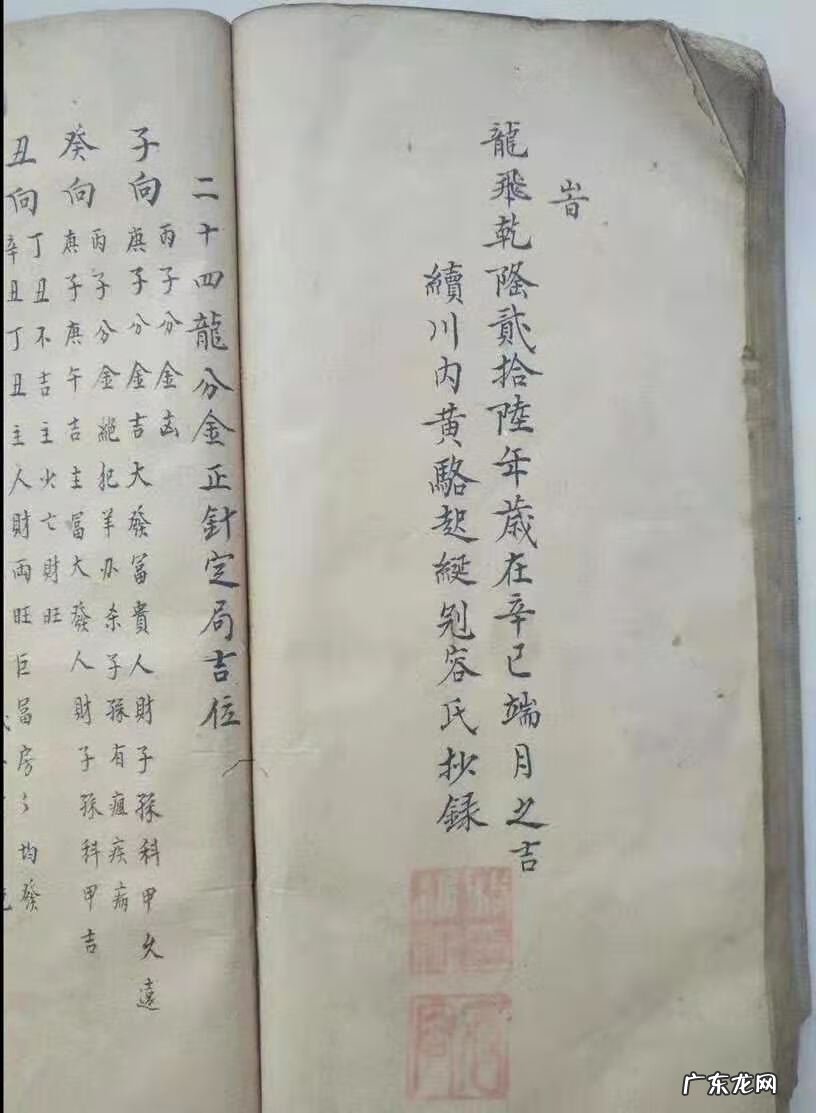 旹
龍飛乾隆貳拾陸年歲在辛巳端月之吉
續川內黄駱起綖剡容氏抄録
二十四龍分金正針定局吉位
子向
丙子分金凶
庚子分金吉大發冨貴人財子孫科甲久遠
癸向
丙子分金絕犯羊刃杀子孫有瘟疾病
庚子庚午吉主冨大發人財子孫科甲吉
丑向
丁丑不吉主火亡財旺
辛丑丁丑主人財両旺巨冨房々均發
广东龙网